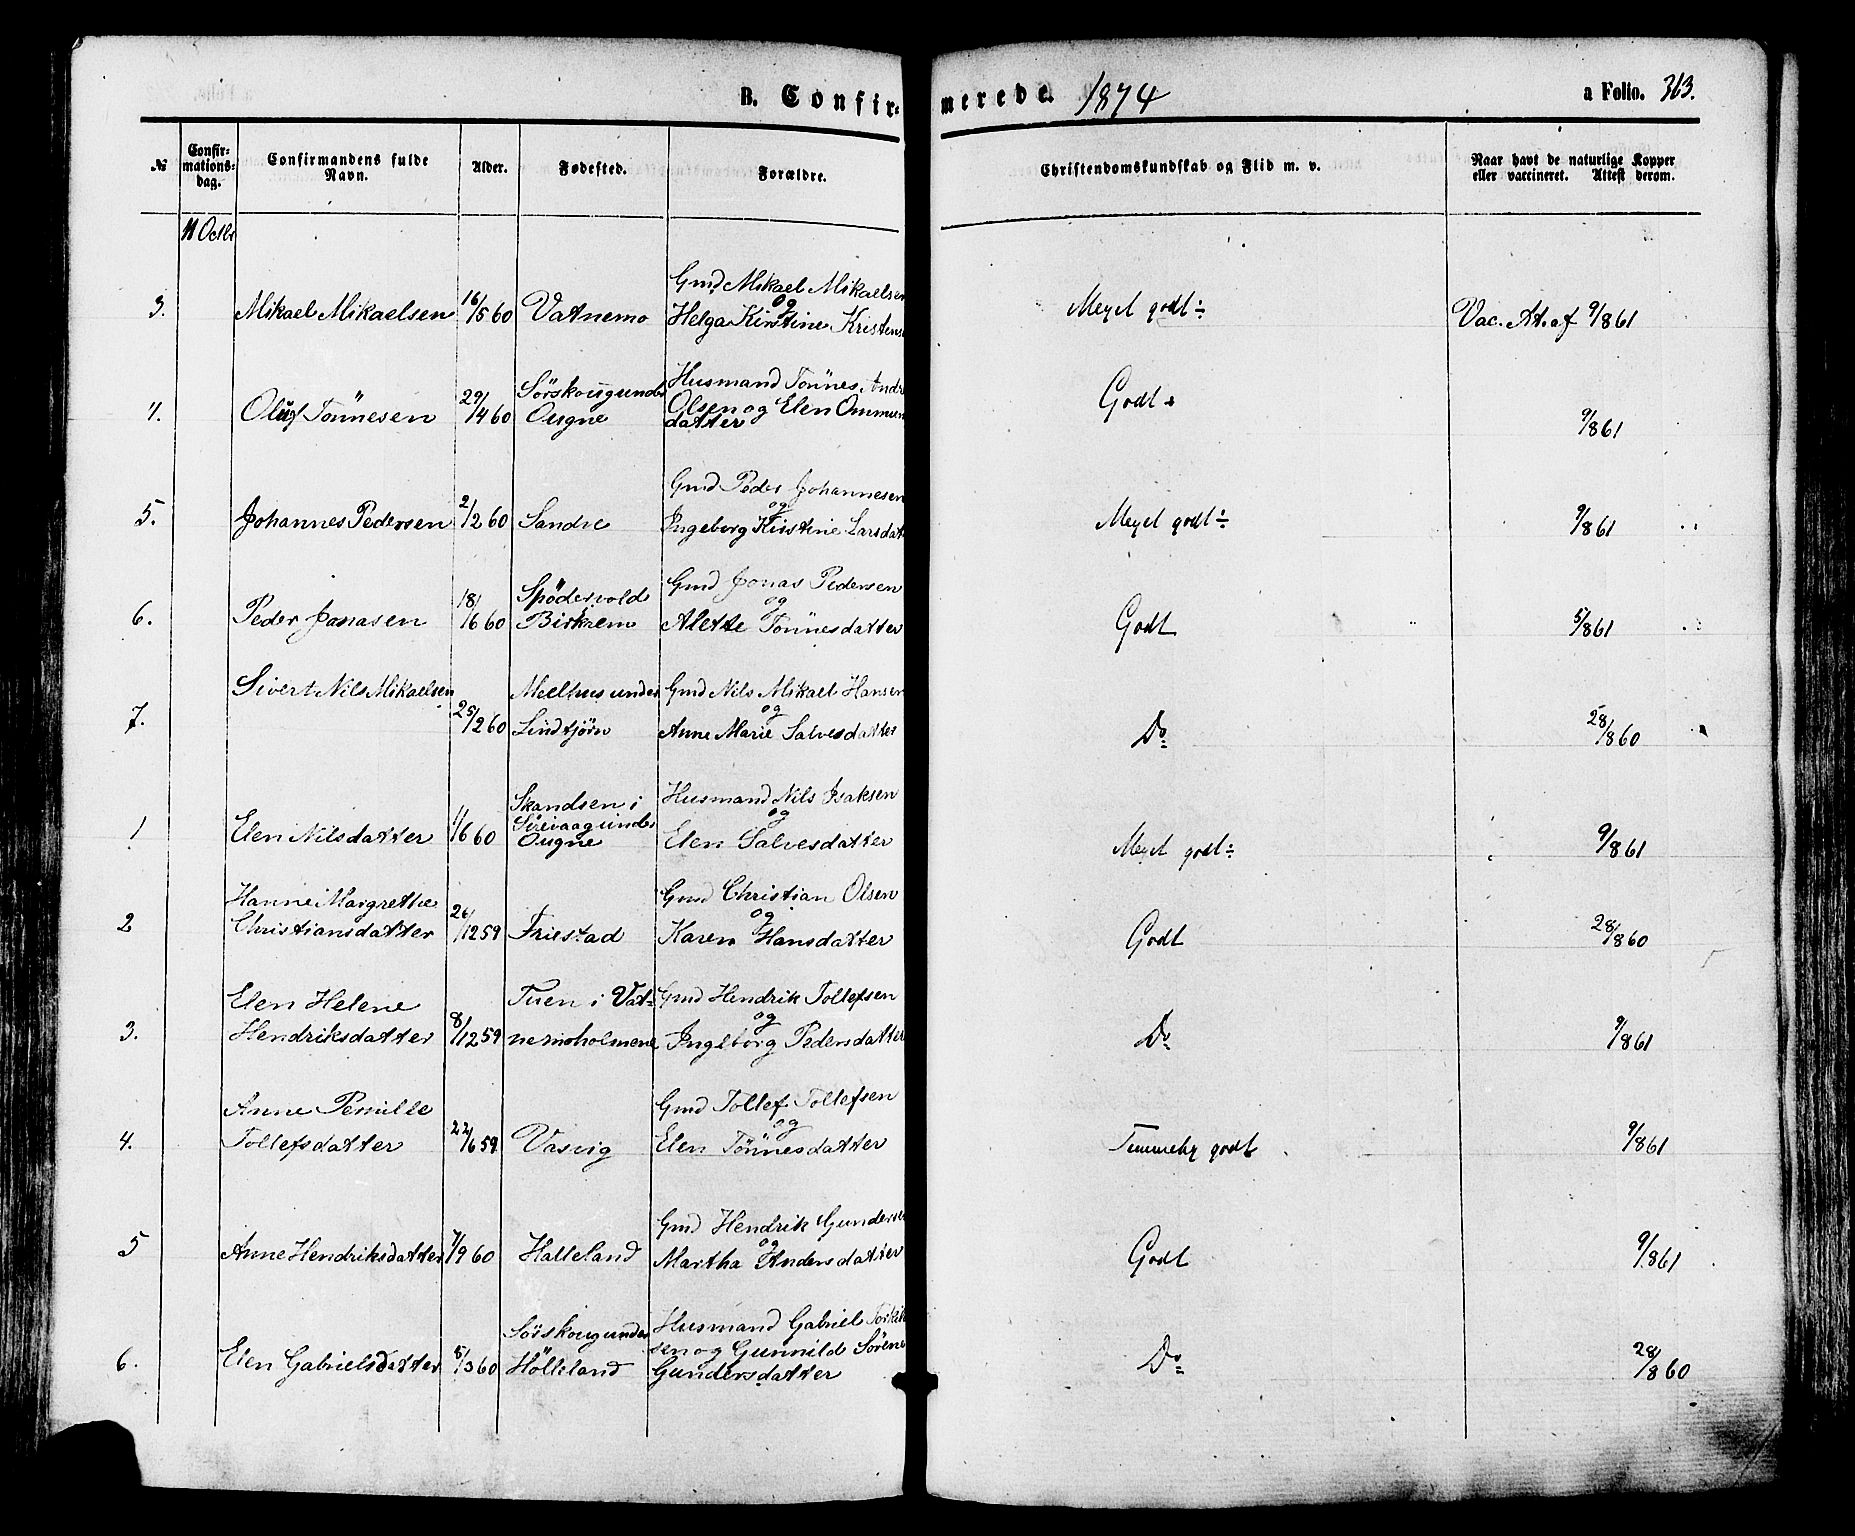 B. Confirmerede. 1874 a Folio. 363.
№ Confirmationsdag. Confirmandens fulde Navn. Alder. Fødested. Forældre. Christendomskundskab og Flid m. v. Naar havt de naturlige Kopper eller vaccineret. Attest derom.
11 Octbr
Gmd Mikael Mikaelsen
og
3. Mikael Mikaelsen 16/5 60 Vatnemo Helga Kirstine Kristens Meget godt ÷ Vac. At. af 9/8 61
Sörskougunder Husmand Tönnes Andr
4. Oluf Tönnesen 29/4 60 Ougne Olsen og Elen Ommun Godt + 9/8 61
datter
Gmd Peder Johannesen
og
5. Johannes Pedersen 2/2 60 Sandve Ingeborg Kirstine Larsdat Meget godt ÷ 9/8 61
Spödervold Gmd Jonas Pedersen
og
6. Peder Jonasen 18/6 60 Birkrem Alette Tönnesdatter Godt 5/8 61
Sivert Nils Mikaelsen Meelhus under Gmd Nils Mikael Hansen
og
7. 25/2 60 Lindtjörn Anne Marie Salvesdatter Do 28/8 60
Skandsen i Husmand Nils Isaksen
Sirevaagunder og
1 Elen Nilsdatter 1/6 60 Ougne Elen Salvesdatter Meget godt ÷ 9/8 61
Hanne Margrethe Gmd Christian Olsen
og
2 Christiansdatter 26/12 59 Friestad Karen Hansdatter Godt 28/8 60
Elen Helene Tuen i Vat- Gmd Hendrik Tollefsen
og
3. Hendriksdatter 8/12 59 nemoholmene Ingeborg Pedersdatter Do 9/8 61
Anne Pernille Gmd Tollef Tollefsen
og
4. Tollefsdatter 22/6 59 Vasvig Elen Tönnesdatter Temmelig godt 9/8 61
Gmd Hendrik Gunderse
og
5 Anne Hendriksdatter 7/9 60 Halleland Martha Andersdatter Godt 9/8 61
Sörskougunder Husmand Gabriel
sen og Gunnild Sörene
6. Elen Gabrielsdatter 5/3 60 Hölleland Gundersdatter Do 28/8 60